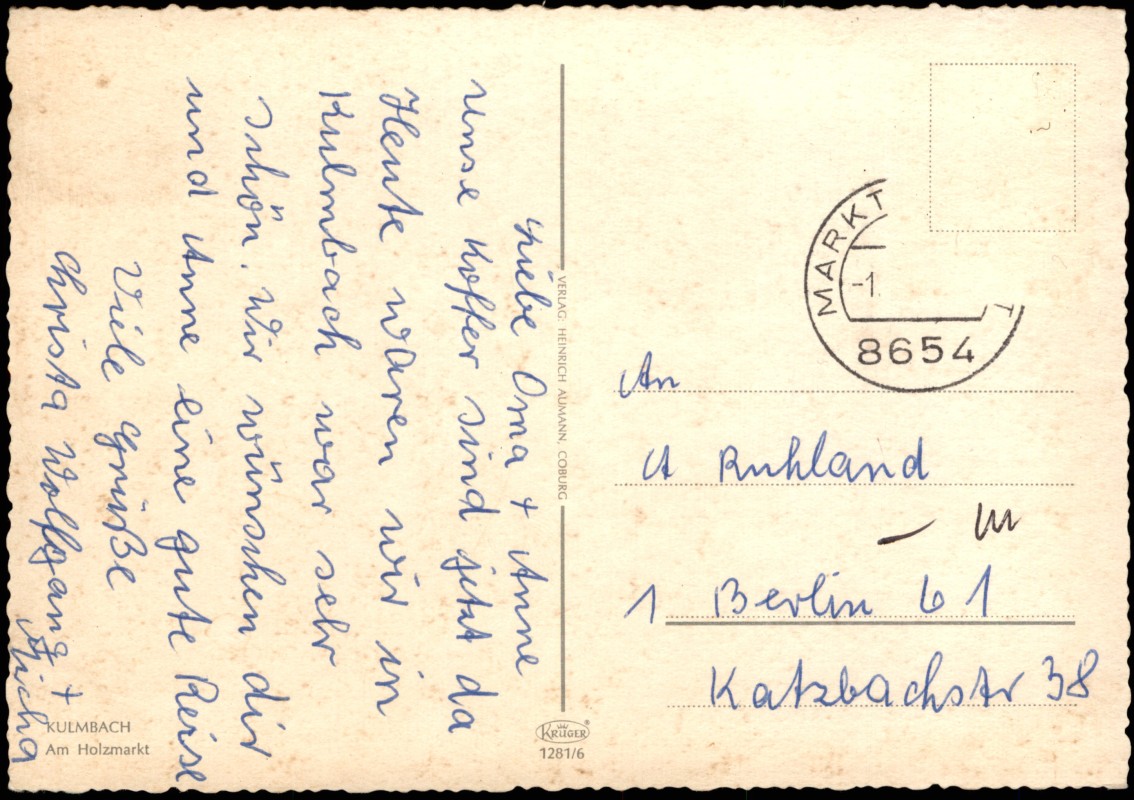 Liebe Oma + Anne
unse Koffer sind jetzt da
Heute waren wir in
Kulmbach war sehr
schön. Wir wünschen dir
und Anne eine gute Reise
Viele Grüße
Christa Wolfgang +
Micha
KULMBACH
Am Holzmarkt
VERLAG: HEINRICH AUMANN, COBURG
KRÜGER
1281/6
MARKT
-1.
T
8654
An
A Ruhland
1 Berlin 61
Katzbachstr 38